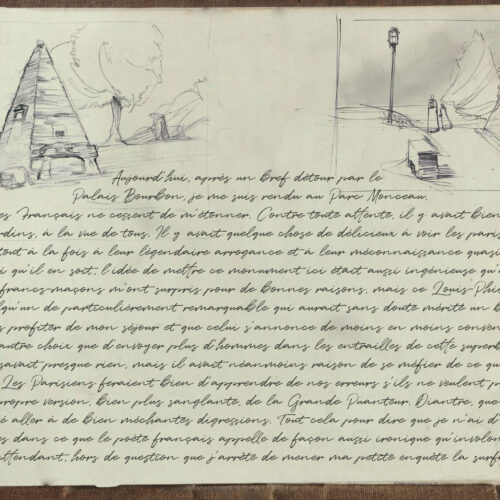 Aujourd'hui, après un bref détour par le
Palais Bourbon, je me suis rendu au Parc Monceau.
es Français ne cessent de m'étonner. Contre toute attente, il y avait bien
rdins, à la vue de tous. Il y avait quelque chose de délicieux à voir les paris
tout à la fois à leur légendaire arrogance et à leur méconnaissance quasi
i qu'il en soit, l'idée de mettre ce monument ici était aussi ingénieuse qu'
francs-maçons m'ont surpris pour de bonnes raisons, mais ce Louis-Phil
lqu'un de particulièrement remarquable qui aurait sans doute mérité un b
s profiter de mon séjour et que celui s'annonce de moins en moins convers
autre choix que d'envoyer plus d'hommes dans les entrailles de cette superb
savait presque rien, mais il avait néanmoins raison de se méfier de ce qu
Les Parisiens feraient bien d'apprendre de nos erreurs s'ils ne veulent p
propre version, bien plus sanglante, de la Grande Puanteur. Diantre, que
é aller à de bien méchantes digressions. Tout cela pour dire que je n'ai d'
s dans ce que le poète français appelle de façon aussi ironique qu'involon
attendant, hors de question que j'arrête de mener ma petite enquête la surfa